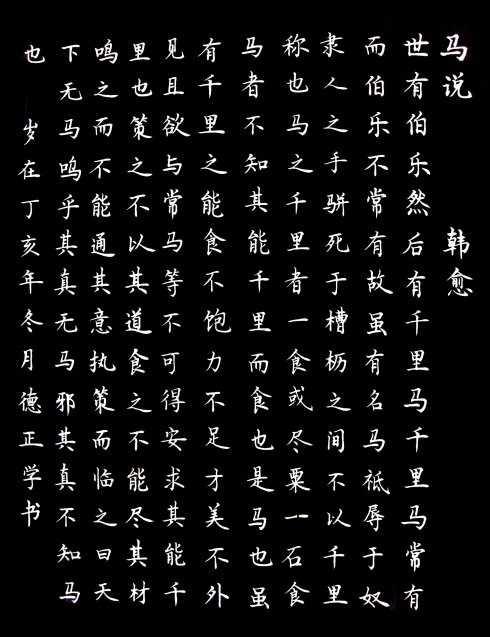 马说 韩愈
世有伯乐然后有千里马千里马常有
而伯乐不常有故虽有名马祗辱于奴
隶人之手骈死于槽枥之间不以千里
称也马之千里者一食或尽粟一石食
马者不知其能千里而食也是马也虽
有千里之能食不饱力不足才美不外
见且欲与常马等不可得安求其能千
里也策之不以其道食之不能尽其材
鸣之而不能通其意执策而临之曰天
下无马呜乎其真无马邪其真不知马
也 岁在丁亥年冬月德正学书